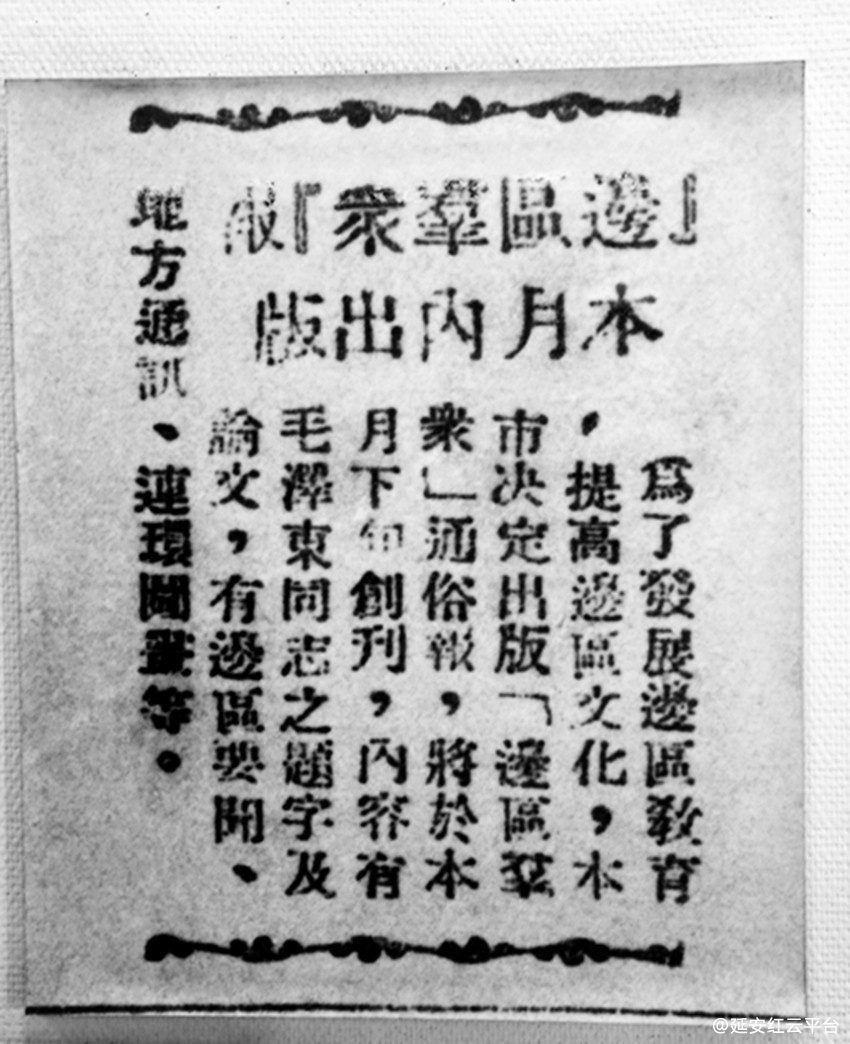 『邊區羣衆』報
本月內出版
爲了發展邊區教育
，提高邊區文化，本
市决定出版「邊區羣
衆」通俗報，將於本
月下旬創刊，內容有
毛澤東同志之題字及
論文，有邊區要聞、
地方通訊、連環圖畫等。
@延安红云平台